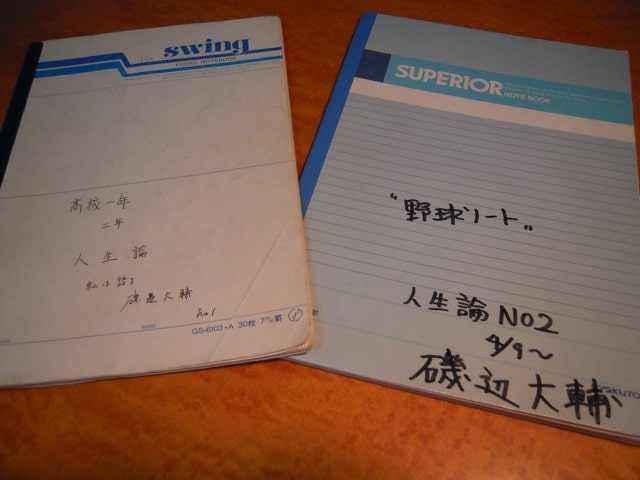 The swing
FUERU·NOTEBOOK
高校一年
二年
人生論
私は語る
磯邊大輔
No.1
NAME
GS-6103·A 30枚 7m/m罫
SUPERIOR
NOTEBOOK
"野球ソート„
人生論 NO2
4/9～
磯辺大輔
KOKUYO